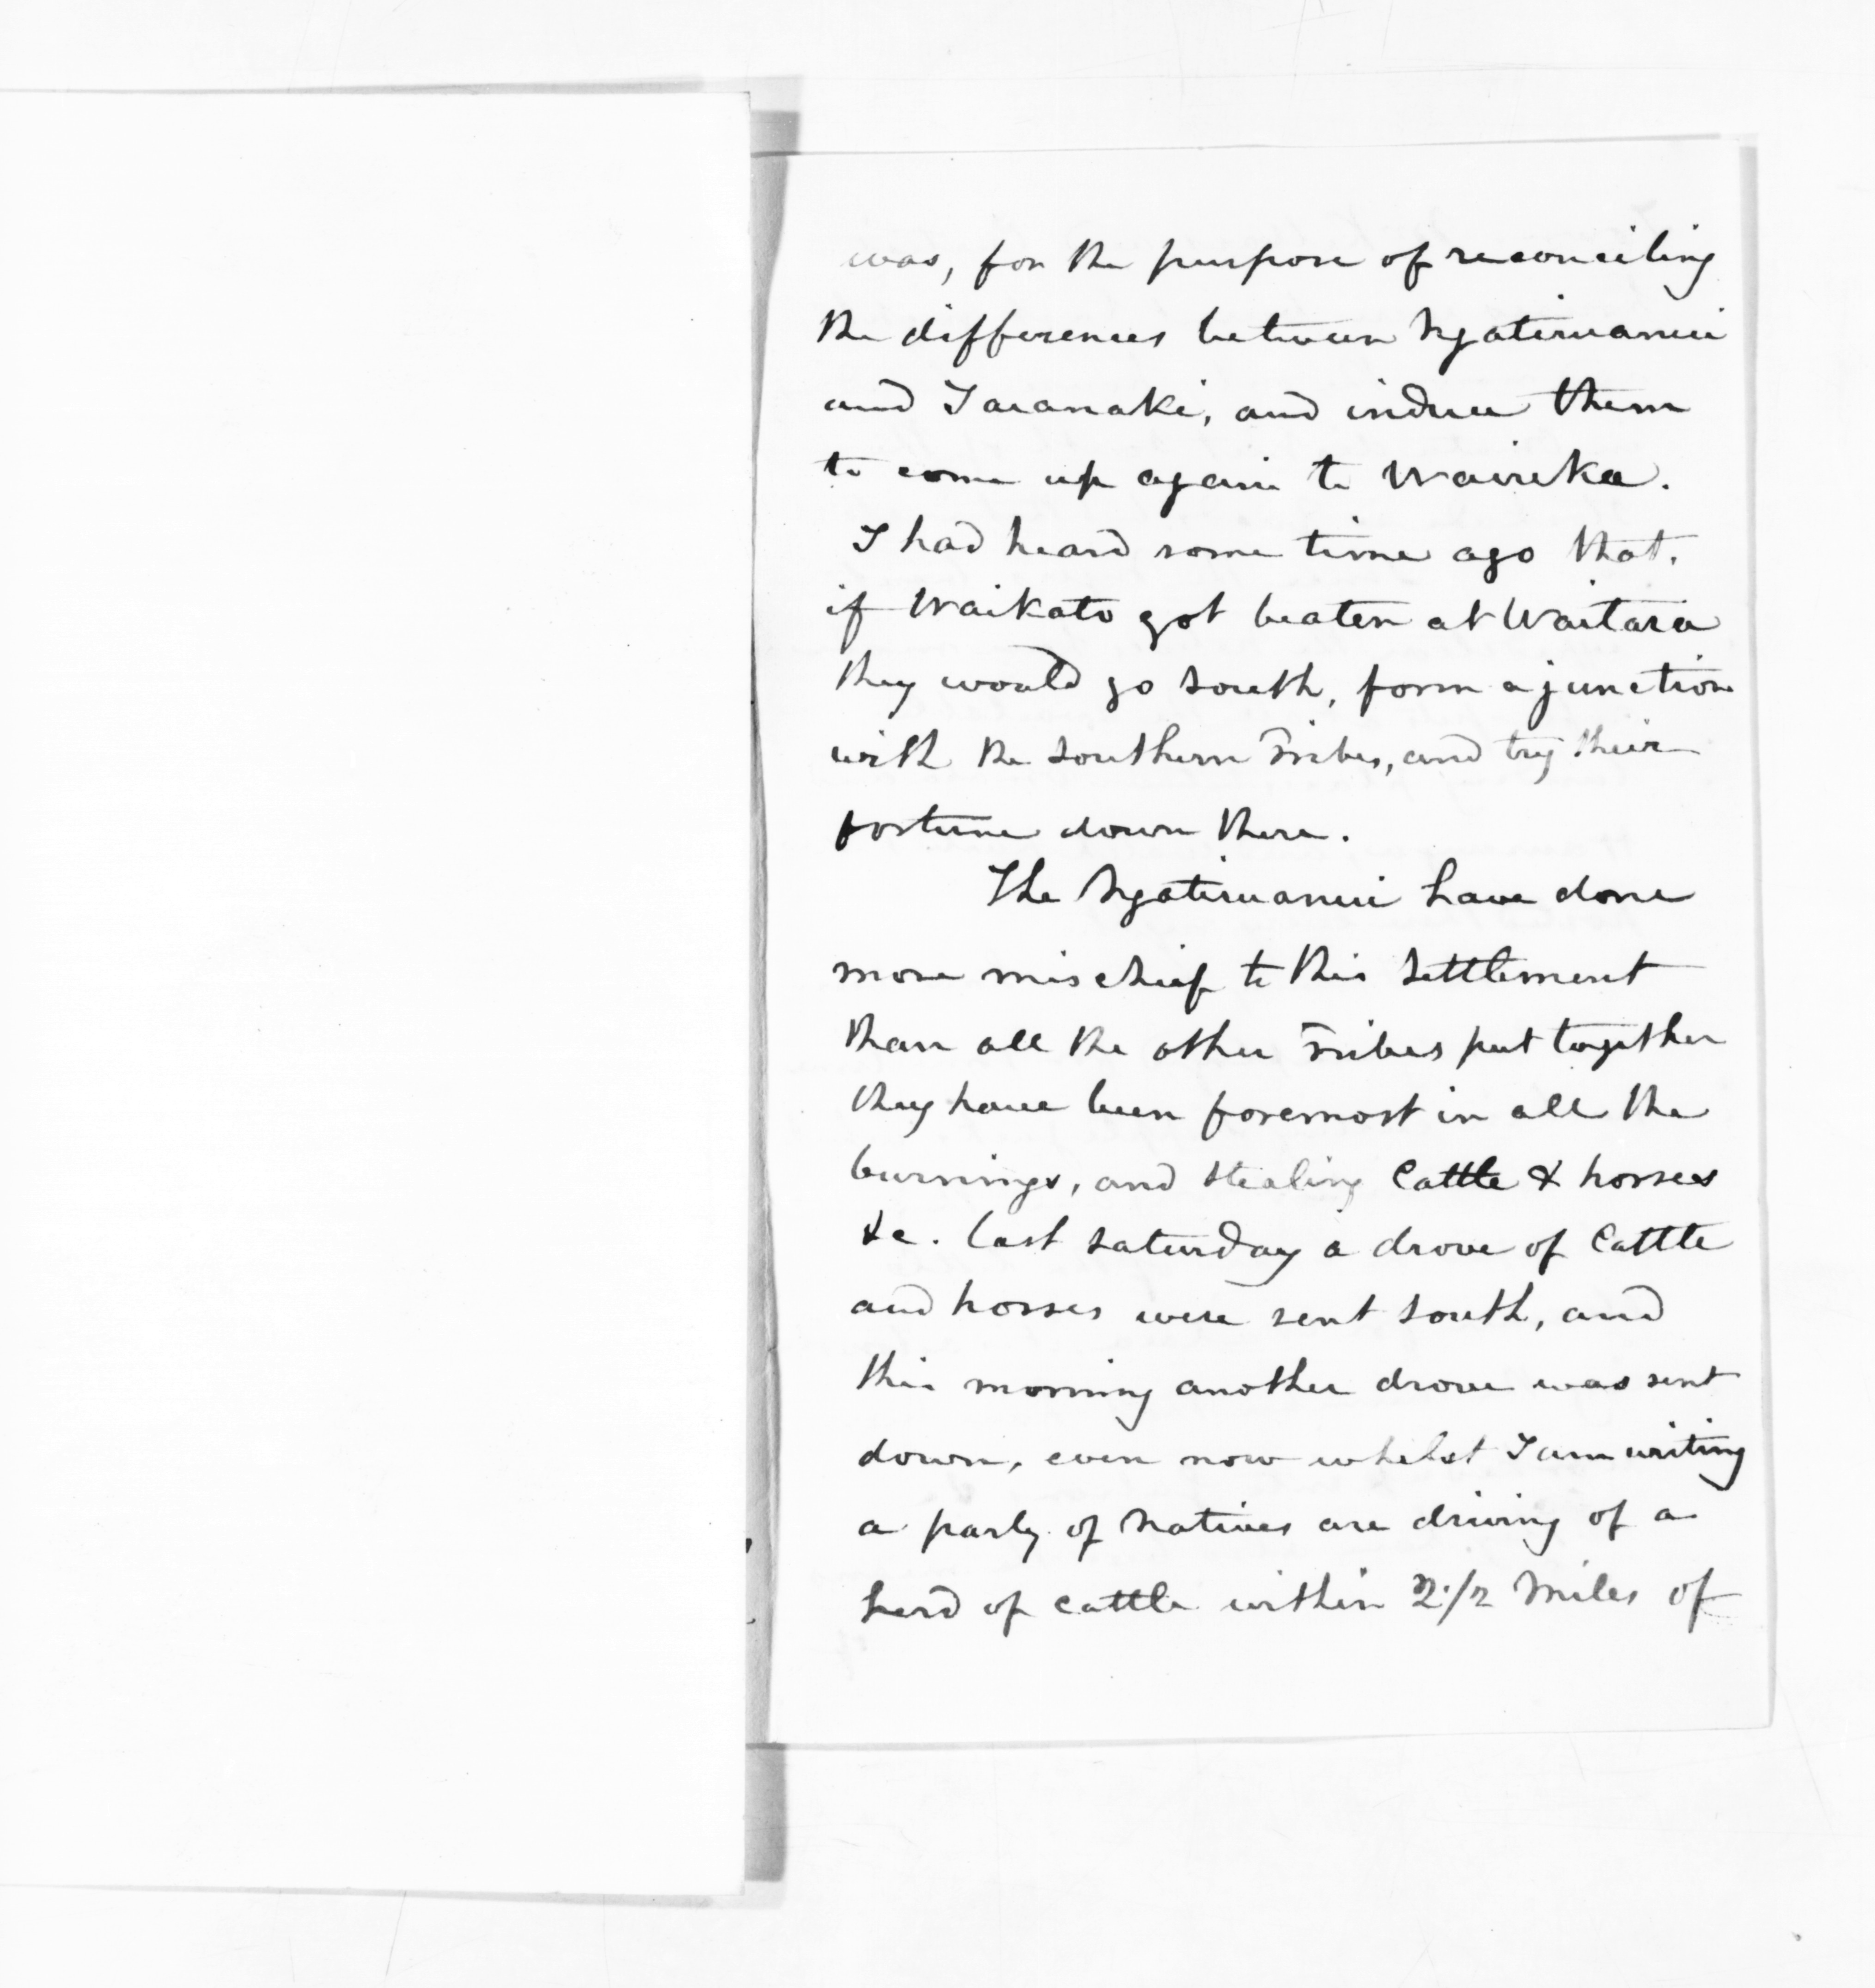 was, for the purpose of reconciling
the differences between Ngatiruanui
and Taranaki, and induce them
to come up again to Waireka.
I had heard some time ago that.
if Waikato got beaten at Waitara
they would go South, form a junction
with the Southern Tribes, and try their
fortune down there.
The Ngatiruanui have done
more mischief to this Settlement
than all the other Tribes put together
they have been foremost in all the
burnings, and Stealing Cattle & horses
&c. last Saturday a drove of Cattle
and horses were sent South, and
this morning another drove was sent
down, even now whilst I am writing
a party of Natives are driving of a
herd of cattle within 2 1/2 Miles of